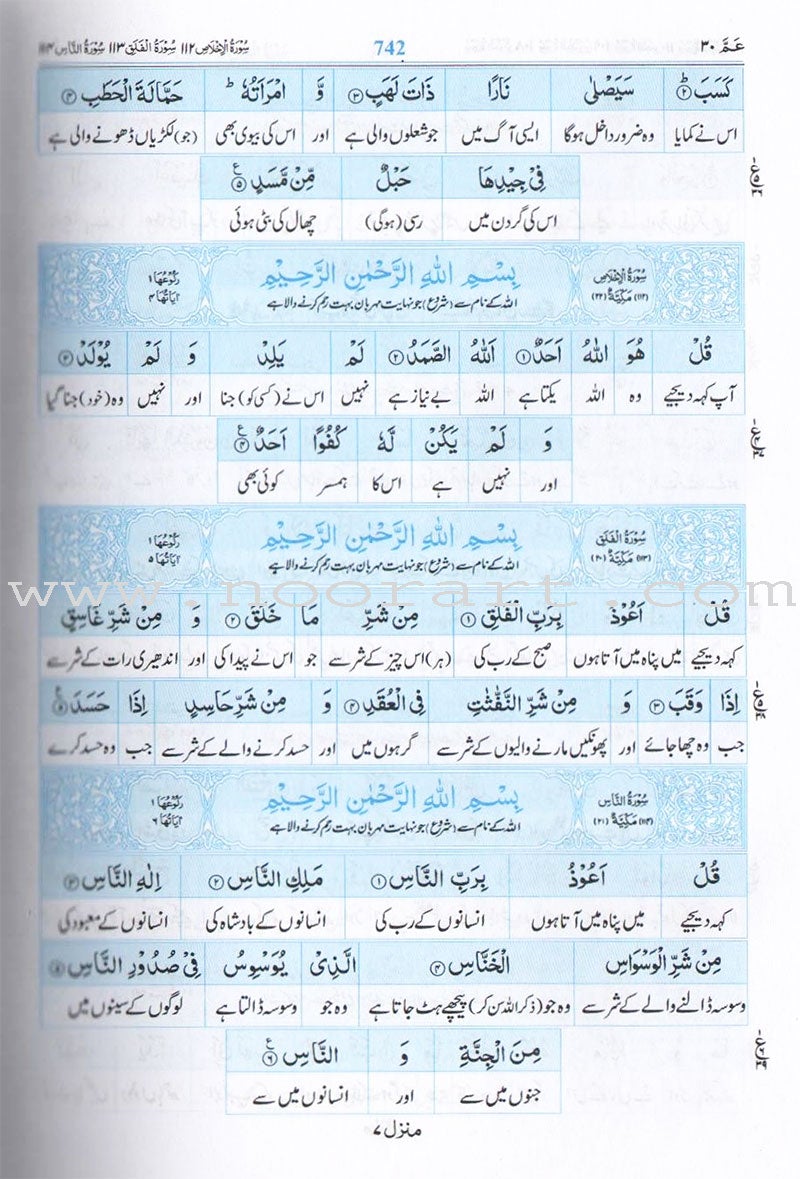 عَمَّ ۳۰ 742 سُوْرَةُ الْاِخْلَاصِ ۱۱۲ سُوْرَةُ الْفَلَقِ ۱۱۳ سُوْرَةُ النَّاسِ ۱۱۴
كَسَبَ ؕ﴿۲﴾ سَيَصْلٰى نَارًا ذَاتَ لَهَبٍ ﴿۳﴾ وَّ امْرَاَتُهٗ ؕ حَمَّالَةَ الْحَطَبِ ﴿۴﴾
اس نے کمایا وہ ضرور داخل ہوگا ایسی آگ میں جو شعلوں والی ہے اور اس کی بیوی بھی (جو) لکڑیاں ڈھونے والی ہے
فِىْ جِيْدِهَا حَبْلٌ مِّنْ مَّسَدٍ ﴿۵﴾
اس کی گردن میں رسی (ہوگی) چھال کی بٹی ہوئی
سُوْرَةُ الْاِخْلَاصِ بِسْمِ اللهِ الرَّحْمٰنِ الرَّحِيْمِ رُكُوْعُهَا ۱
(۱۱۲) مَكِّيَّةٌ (۲۲) اللہ کے نام سے (شروع) جو نہایت مہربان بہت رحم کرنے والا ہے اٰيَاتُهَا ۴
قُلْ هُوَ اللهُ اَحَدٌ ﴿۱﴾ اَللهُ الصَّمَدُ ﴿۲﴾ لَمْ يَلِدْ وَ لَمْ يُوْلَدْ ﴿۳﴾
آپ کہہ دیجیے وہ اللہ یکتا ہے اللہ بے نیاز ہے نہیں اس نے (کسی کو) جنا اور نہیں وہ (خود) جنا گیا
وَ لَمْ يَكُنْ لَّهٗ كُفُوًا اَحَدٌ ﴿۴﴾
اور نہیں ہے اس کا ہمسر کوئی بھی
سُوْرَةُ الْفَلَقِ بِسْمِ اللهِ الرَّحْمٰنِ الرَّحِيْمِ رُكُوْعُهَا ۱
(۱۱۳) مَكِّيَّةٌ (۲۰) اللہ کے نام سے (شروع) جو نہایت مہربان بہت رحم کرنے والا ہے اٰيَاتُهَا ۵
www.noorart.com
قُلْ اَعُوْذُ بِرَبِّ الْفَلَقِ ﴿۱﴾ مِنْ شَرِّ مَا خَلَقَ ﴿۲﴾ وَ مِنْ شَرِّ غَاسِقٍ
کہہ دیجیے میں پناہ میں آتا ہوں صبح کے رب کی (ہر) اس چیز کے شر سے جو اس نے پیدا کی اور اندھیری رات کے شر سے
اِذَا وَقَبَ ﴿۳﴾ وَ مِنْ شَرِّ النَّفّٰثٰتِ فِى الْعُقَدِ ﴿۴﴾ وَ مِنْ شَرِّ حَاسِدٍ اِذَا حَسَدَ ﴿۵﴾
جب وہ چھا جائے اور پھونکیں مارنے والیوں کے شر سے گرہوں میں اور حسد کرنے والے کے شر سے جب وہ حسد کرے
سُوْرَةُ النَّاسِ بِسْمِ اللهِ الرَّحْمٰنِ الرَّحِيْمِ رُكُوْعُهَا ۱
(۱۱۴) مَكِّيَّةٌ (۲۱) اللہ کے نام سے (شروع) جو نہایت مہربان بہت رحم کرنے والا ہے اٰيَاتُهَا ۶
قُلْ اَعُوْذُ بِرَبِّ النَّاسِ ﴿۱﴾ مَلِكِ النَّاسِ ﴿۲﴾ اِلٰهِ النَّاسِ ﴿۳﴾
کہہ دیجیے میں پناہ میں آتا ہوں انسانوں کے رب کی انسانوں کے بادشاہ کی انسانوں کے معبود کی
مِنْ شَرِّ الْوَسْوَاسِ الْخَنَّاسِ ﴿۴﴾ الَّذِىْ يُوَسْوِسُ فِىْ صُدُوْرِ النَّاسِ ﴿۵﴾
وسوسہ ڈالنے والے کے شر سے وہ جو (ذکر اللہ سن کر) پیچھے ہٹ جاتا ہے وہ جو وسوسہ ڈالتا ہے لوگوں کے سینوں میں
مِنَ الْجِنَّةِ وَ النَّاسِ ﴿۶﴾
جنوں میں سے اور انسانوں میں سے
منزل ۷